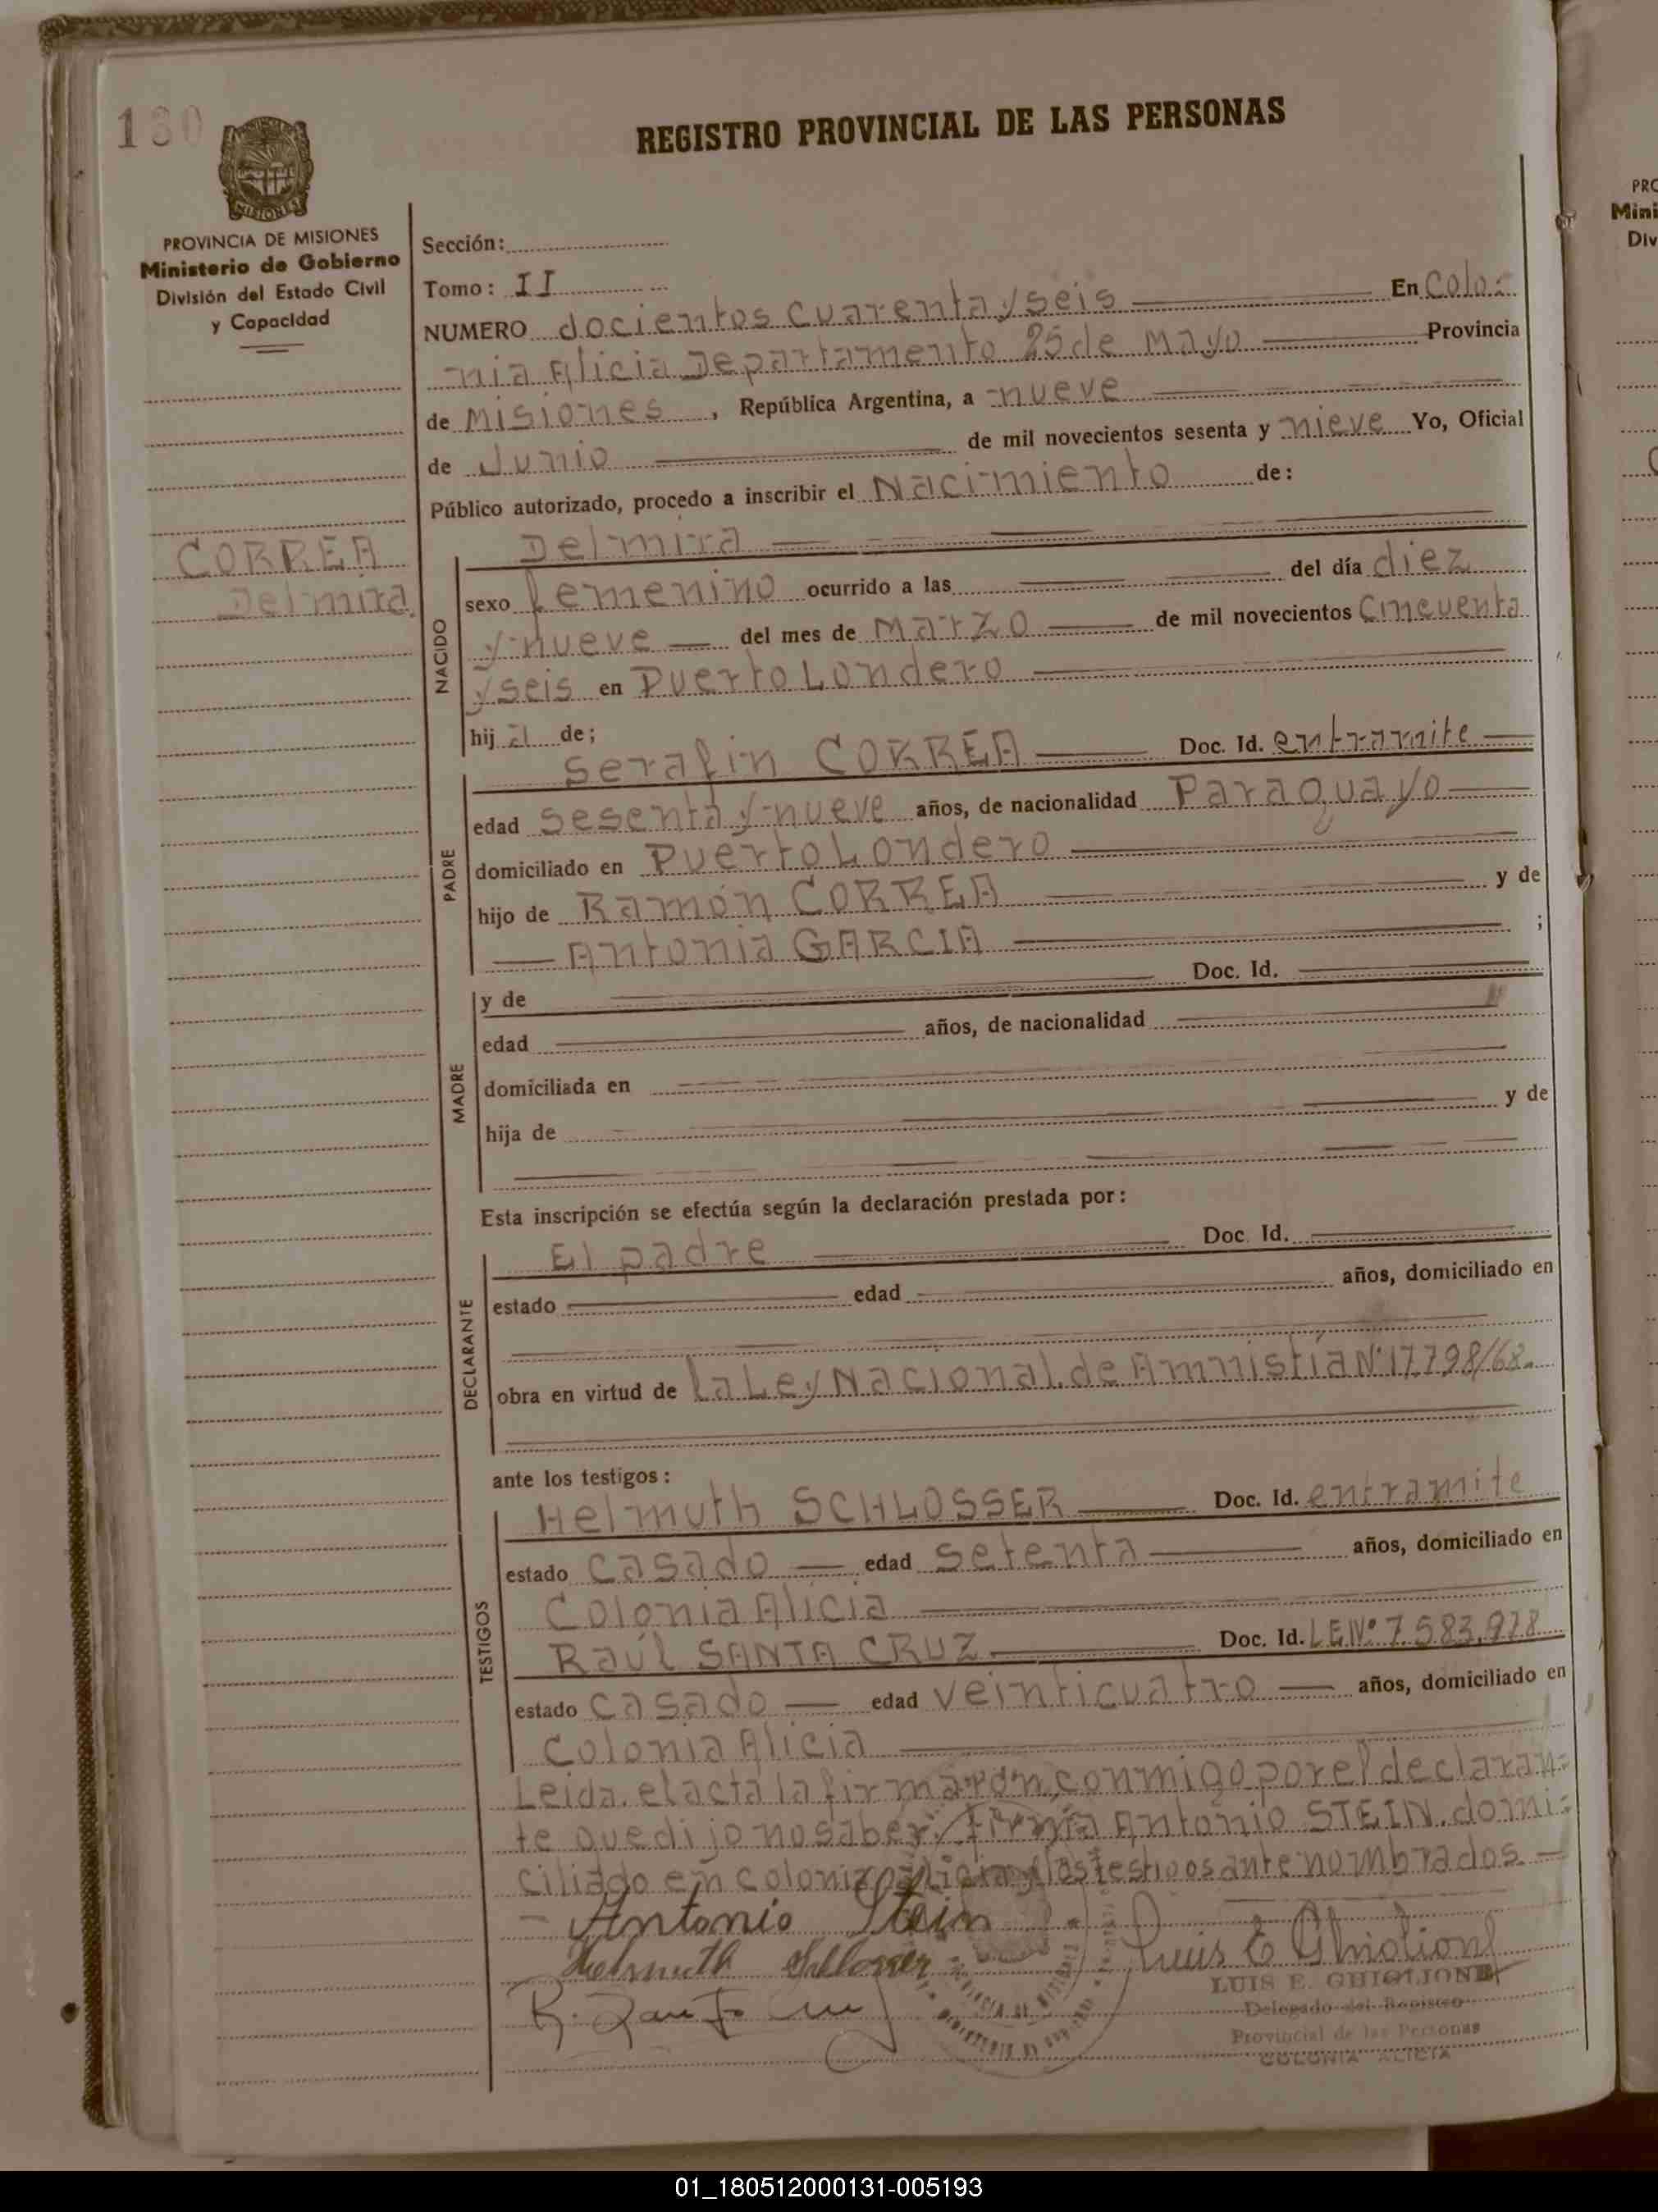 130
REGISTRO PROVINCIAL DE LAS PERSONAS
MISIONES
PROVINCIA DE MISIONES
Ministerio de Gobierno
División del Estado Civil
y Capacidad
CORREA
Delmira
Sección:
Tomo: II
NUMERO docientos cuarenta y seis En Colo=
nia Alicia Departamento 25 de Mayo Provincia
de Misiones, República Argentina, a nueve
de Junio de mil novecientos sesenta y nieve Yo, Oficial
Público autorizado, procedo a inscribir el Nacimiento de:
Delmira
NACIDO
sexo femenino ocurrido a las del día diez
y nueve del mes de Marzo de mil novecientos Cincuenta
y seis en Puerto Londero
hij a de;
Serafin CORREA Doc. Id. en tramite
PADRE
edad sesenta y nueve años, de nacionalidad Paraguayo
domiciliado en Puerto Londero
hijo de Ramón CORREA y de
Antonia GARCIA ;
MADRE
y de Doc. Id.
edad años, de nacionalidad
domiciliada en
hija de y de
Esta inscripción se efectúa según la declaración prestada por:
El padre Doc. Id.
DECLARANTE
estado edad años, domiciliado en
obra en virtud de la Ley Nacional de Amnistía Nº 17.798/68.
ante los testigos:
Helmuth SCHLOSSER Doc. Id. en tramite
TESTIGOS
estado casado edad setenta años, domiciliado en
Colonia Alicia
Raúl SANTA CRUZ Doc. Id. LE Nº 7.583.978
estado casado edad veinticuatro años, domiciliado en
Colonia Alicia
Leida el acta la firmaron, conmigo por el declaran=
te que dijo no saber firmar Antonio STEIN, domi=
ciliado em colonia Alicia y los testigos ante nombrados.
Antonio Stein
Helmuth Schlosser
R. Santa Cruz
Luis E Ghiglione
LUIS E. GHIGLIONE
Delegado del Registro
Provincial de las Personas
COLONIA ALICIA
PRO
Mini
Div
01_180512000131-005193